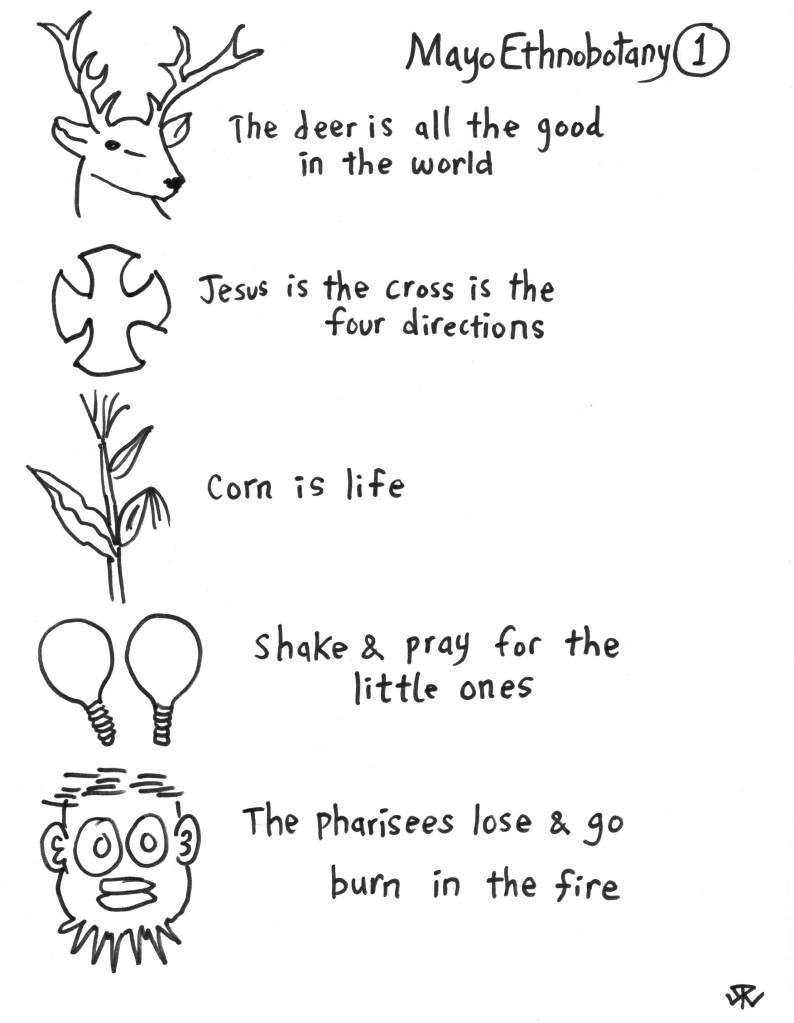 Mayo Ethnobotany 1
The deer is all the good
in the world
Jesus is the cross is the
four directions
Corn is life
Shake & pray for the
little ones
The pharisees lose & go
burn in the fire